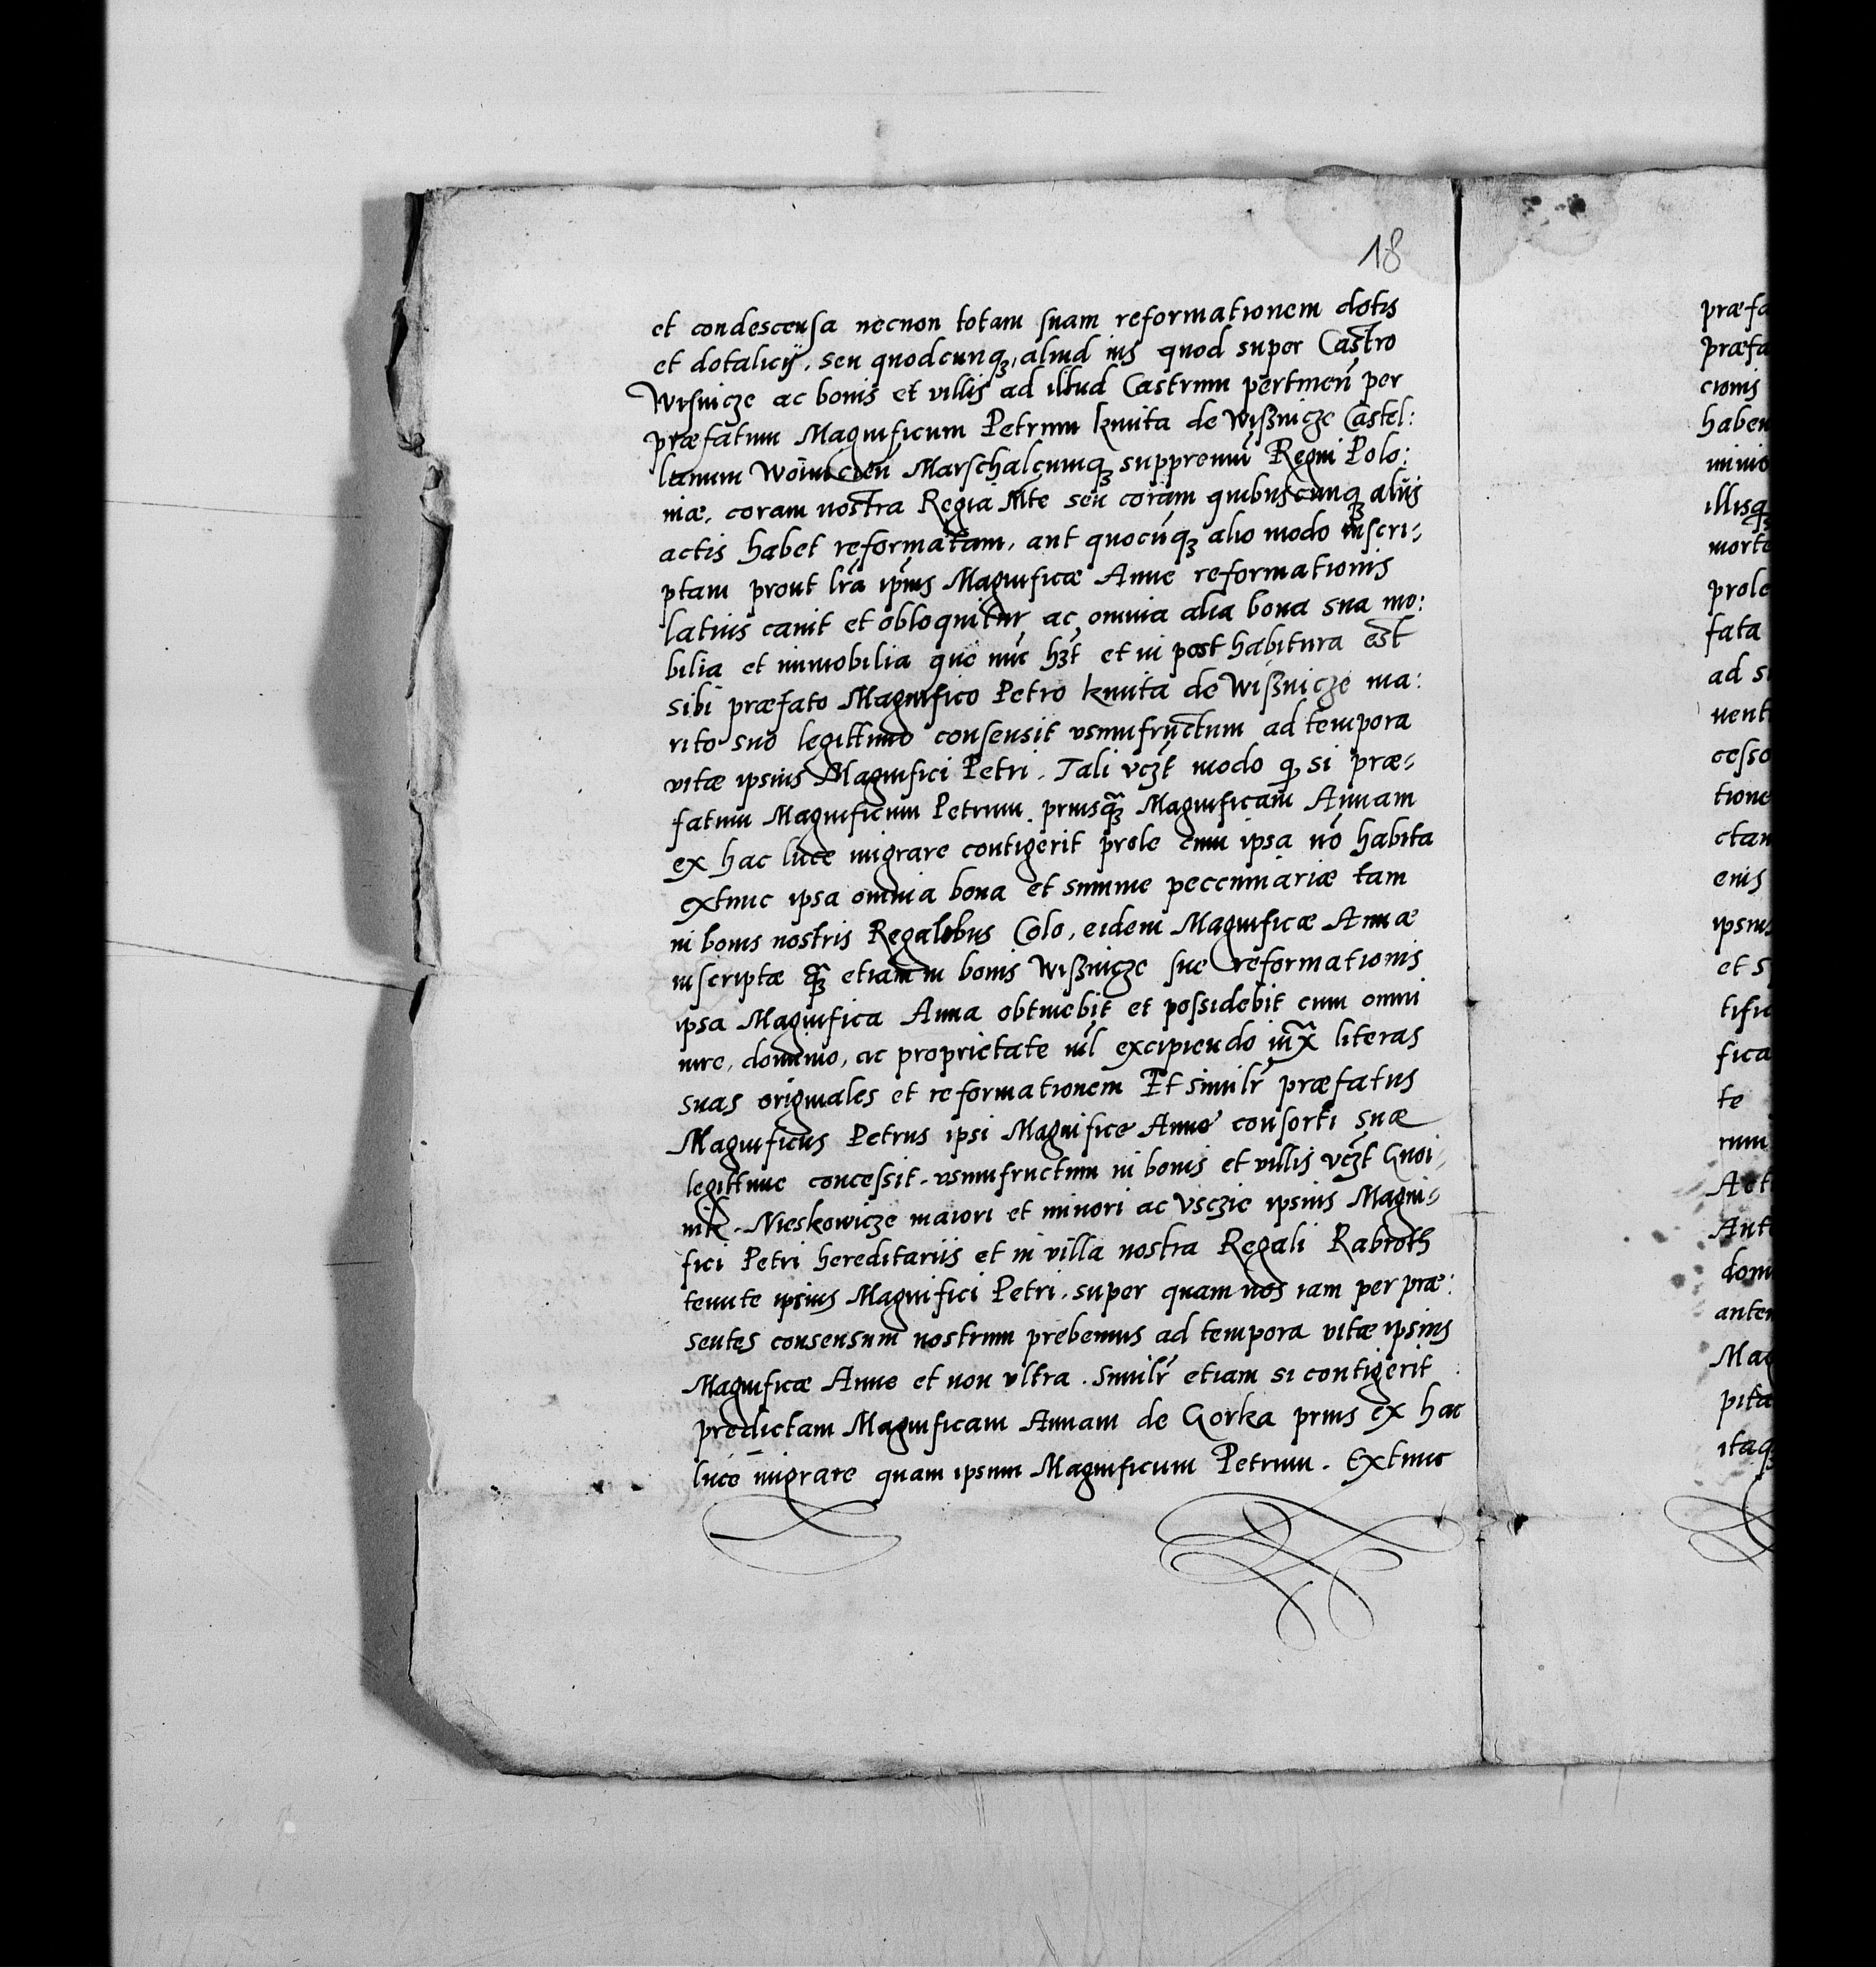 18
et condescensa necnon totam suam reformationem dotis
et dotalicij, seu quodcunq₃ aliud ius quod super Castro
Wisnicze ac bonis et villis ad illud Castrum pertineñ per
præfatum Magnificum Petrum kmita de Wißnicze Castel:
lanum Woinicieñ Marschalcumq₃ suppremũ Regni Polo:
niæ, coram nostra Regia Mte seu coram quibuscunq₃ alijs
actis habet reformatam, aut quocũq₃ alio modo inscri-
ptam prout lr̃a ip̃ius Magnificæ Anne reformationis
latius canit et obloquitur ac omnia alia bona sua mo:
bilia et immobilia que nũc hʒt et in post habitura est
sibi præfato Magnifico Petro kmita de Wißnicze ma:
rito suo legittimo consensit vsumfructum ad tempora
vitæ ipsius Magnifici Petri. Tali vcʒt modo q̃ si præ-
fatum Magnificum Petrum, priusq̃₃ Magnificam Annam
ex hac luce migrare contigerit prole cum ipsa nõ habita
extunc ipsa omnia bona et summe peccuniariæ tam
in bonis nostris Regalibus Colo, eidem Magnificæ Annæ
inscriptæ q̃₃ etiam in bonis Wißnicze sue reformationis
ipsa Magnifica Anna obtinebit et possidebit cum omni
iure, dominio, ac proprietate nil excipiendo iuxta literas
suas originales et reformationem Et similr̃ præfatus
Magnificus Petrus ipsi Magnifice Anne consorti suæ
legittime concessit vsumfructum in bonis et villis vcʒt Gnoi-
nik, Nieskowicze maiori et minori ac Vsczie ipsius Magni-
fici Petri hereditariis et in villa nostra Regali Rabroth
tenute ipsius Magnifici Petri, super quam nos iam per præ:
sentes consensum nostrum prebemus ad tempora vitæ ipsius
Magnificæ Anne et non vltra. Similr̃ etiam si contigerit
predictam Magnificam Annam de Gorka prius ex hac
luce migrare quam ipsum Magnificum Petrum. Extunc
præfa
præfa
cionis
haben
illisq₃
morte
prole
fata
ad s
uent
cesso
tione
ctam
enis
ipsius
et s
tific
fica
te
rum
Act
Ante
dom
anten
Mag
pita
itaq₃